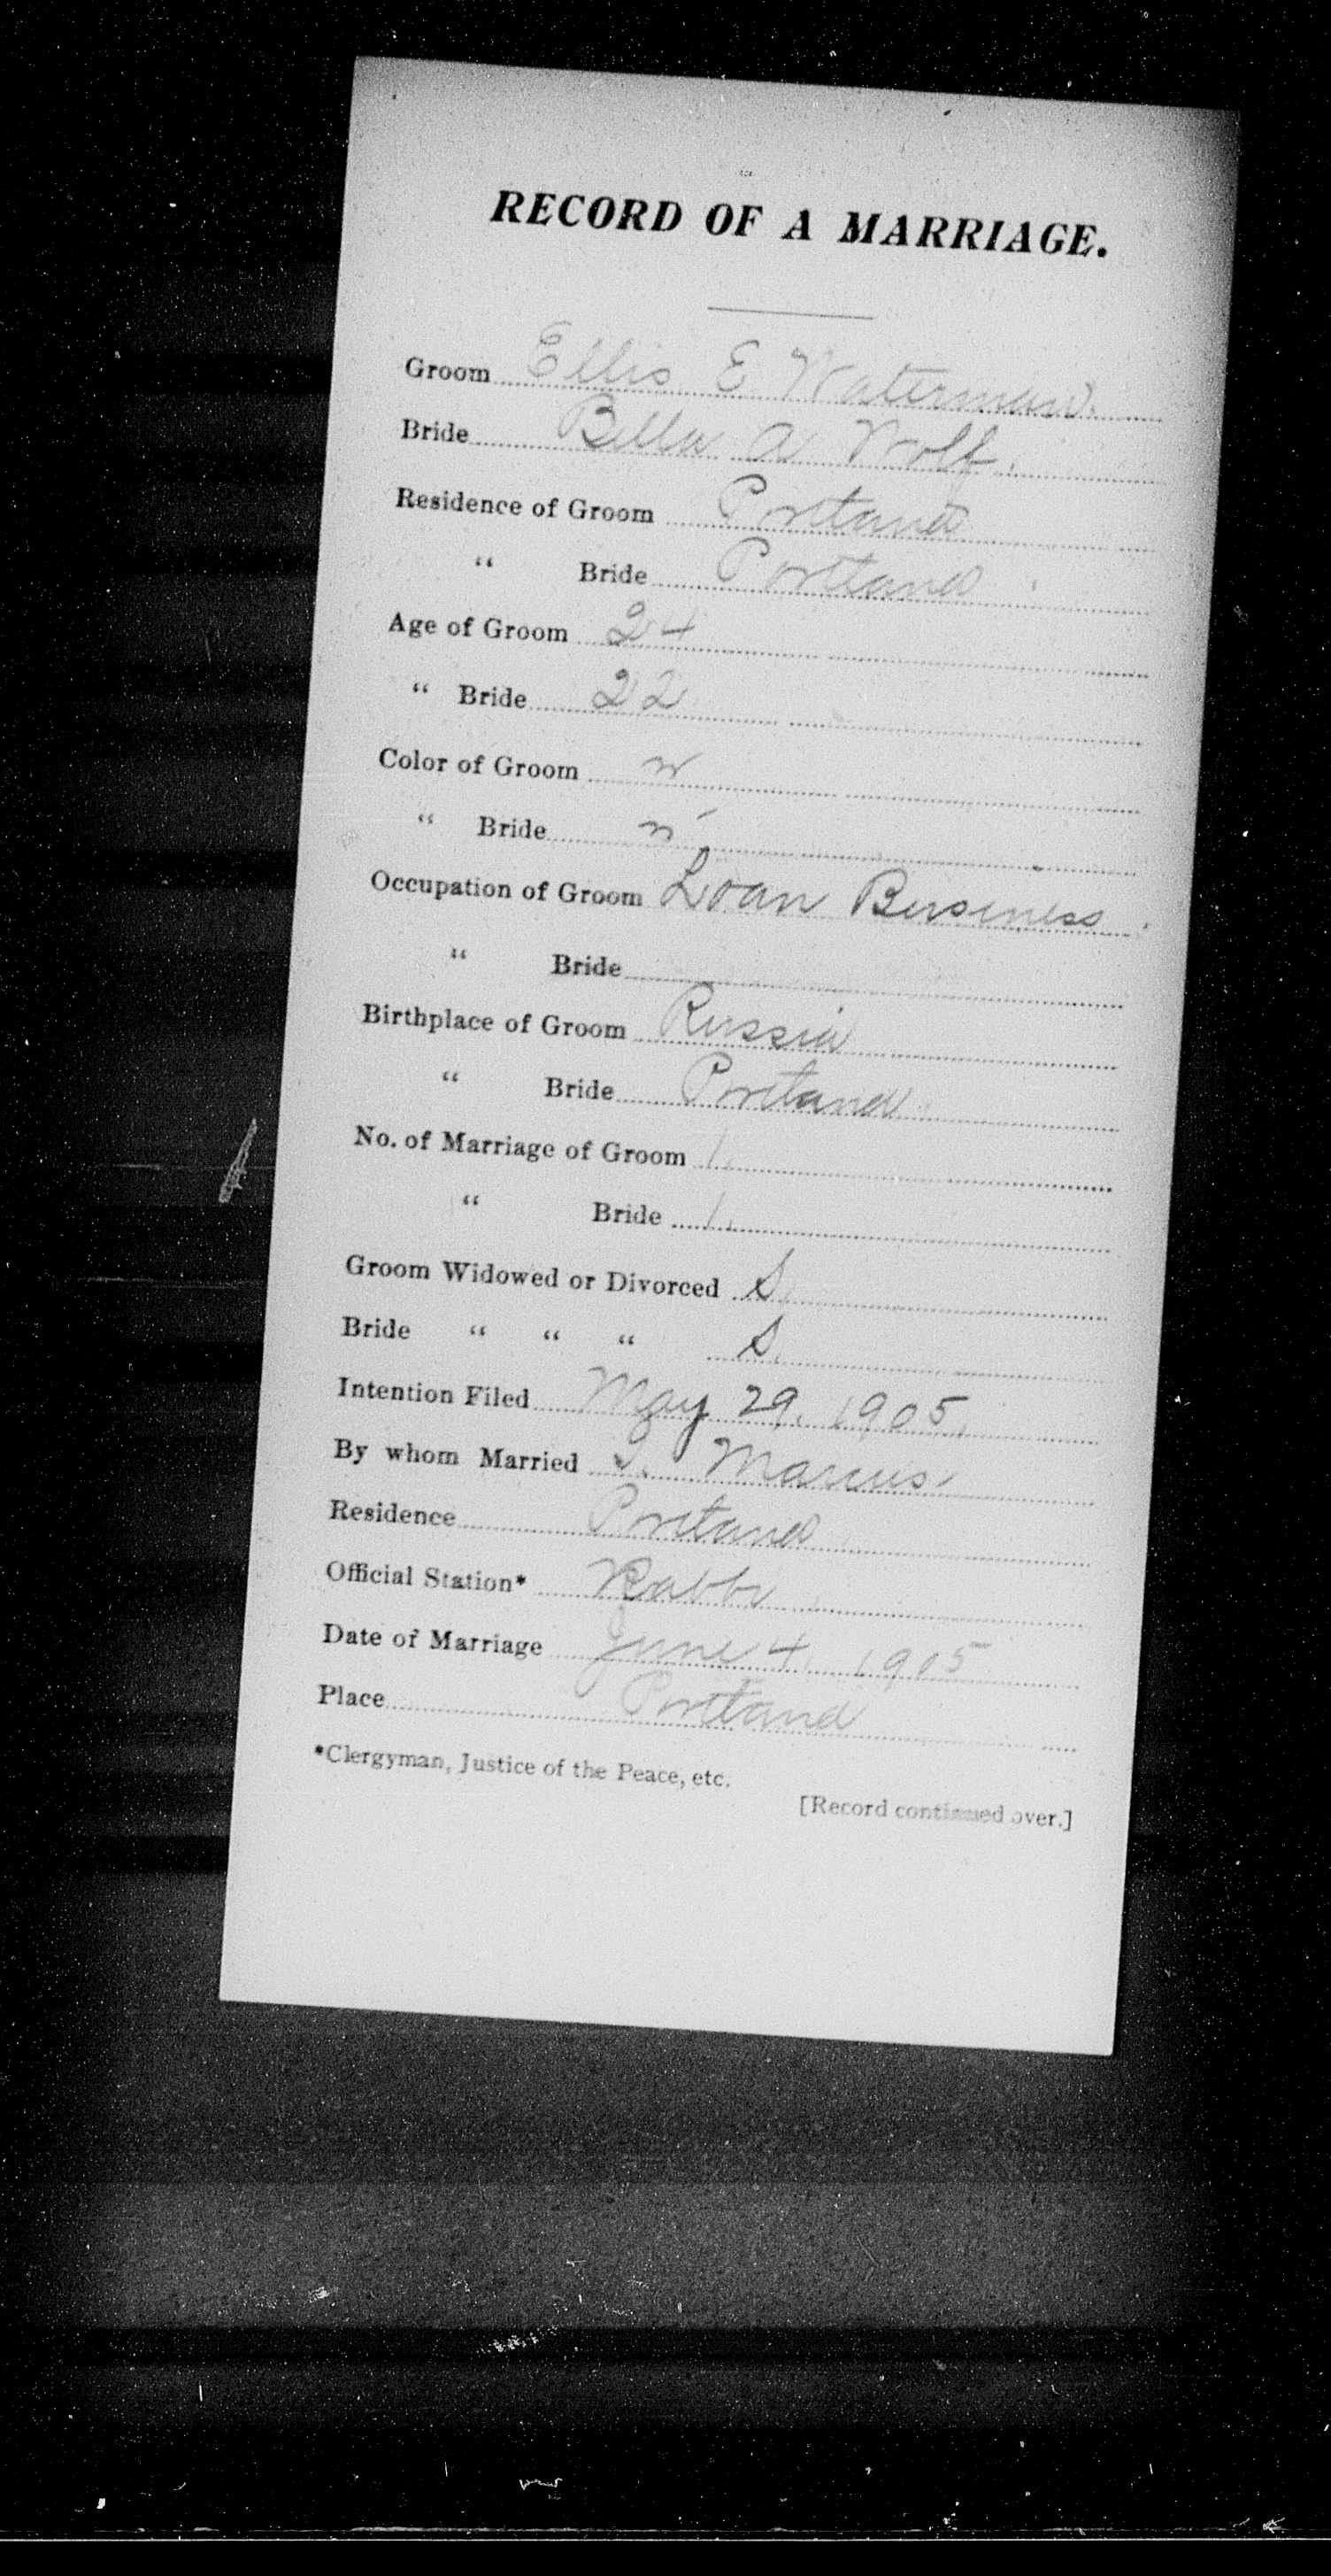 RECORD OF A MARRIAGE.
Groom Ellis E Waterman.
Bride Bella A Wolf.
Residence of Groom Portland
" Bride Portland
Age of Groom 24
" Bride 22
Color of Groom W
" Bride W
Occupation of Groom Loan Business.
" Bride
Birthplace of Groom Russia
" Bride Portland
No. of Marriage of Groom 1.
" Bride 1.
Groom Widowed or Divorced S.
Bride " " " S.
Intention Filed May 29, 1905,
By whom Married Marcus
Residence Portland
Official Station* Rabbi
Date of Marriage June 4, 1905
Place Portland
*Clergyman, Justice of the Peace, etc.
[Record continued over.]